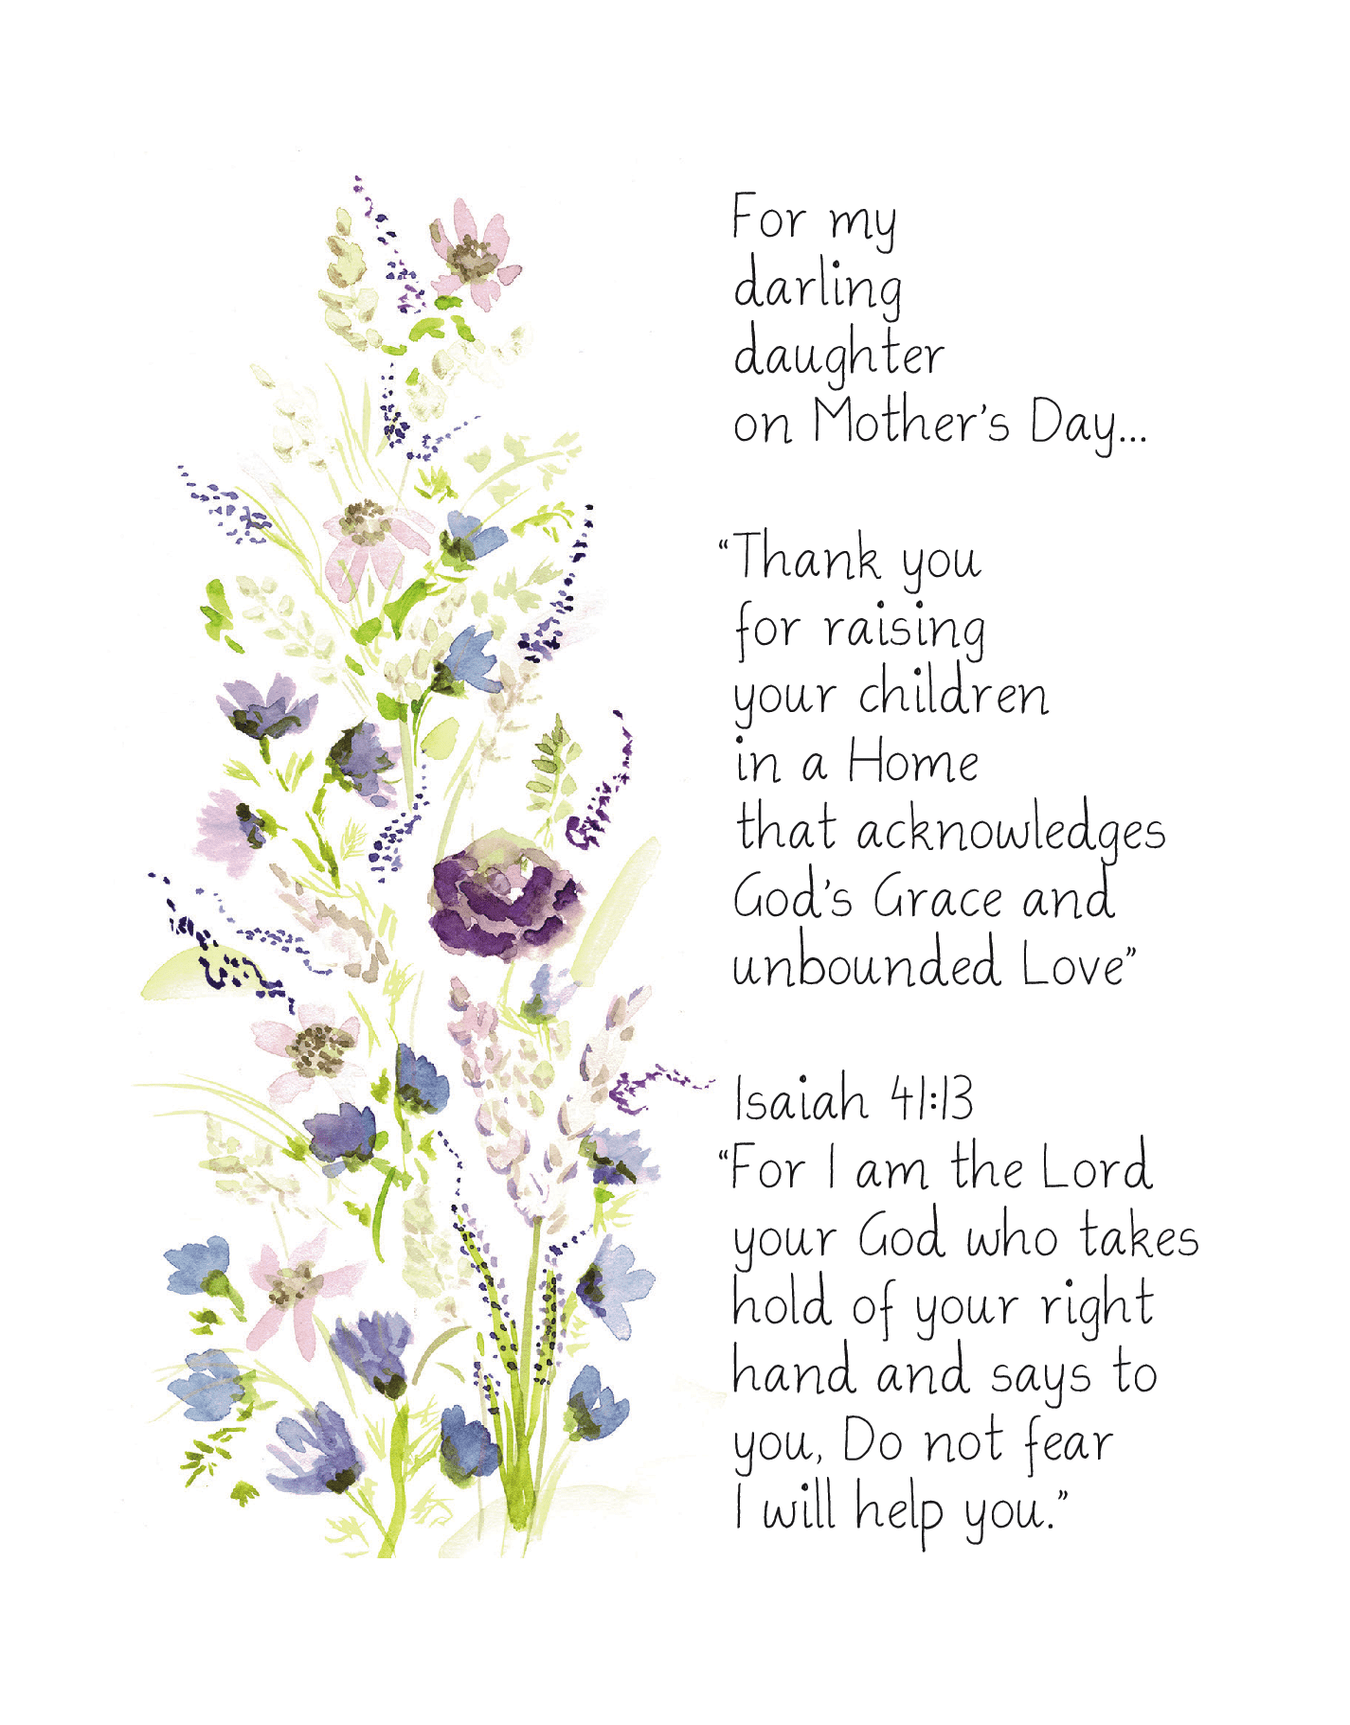 For my
darling
daughter
on Mother's Day...
“Thank you
for raising
your children
in a Home
that acknowledges
God's Grace and
unbounded Love”
Isaiah 41:13
“For I am the Lord
your God who takes
hold of your right
hand and says to
you, Do not fear
I will help you.”